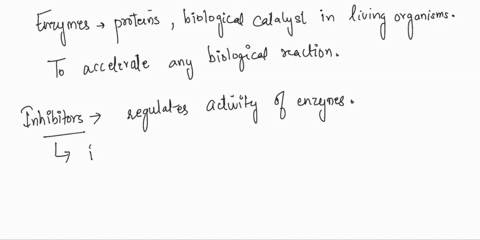 Enzymes → proteins, biological catalyst in living organisms.
To accelerate any biological reaction.
Inhibitors → regulates activity of enzymes.
↳ i